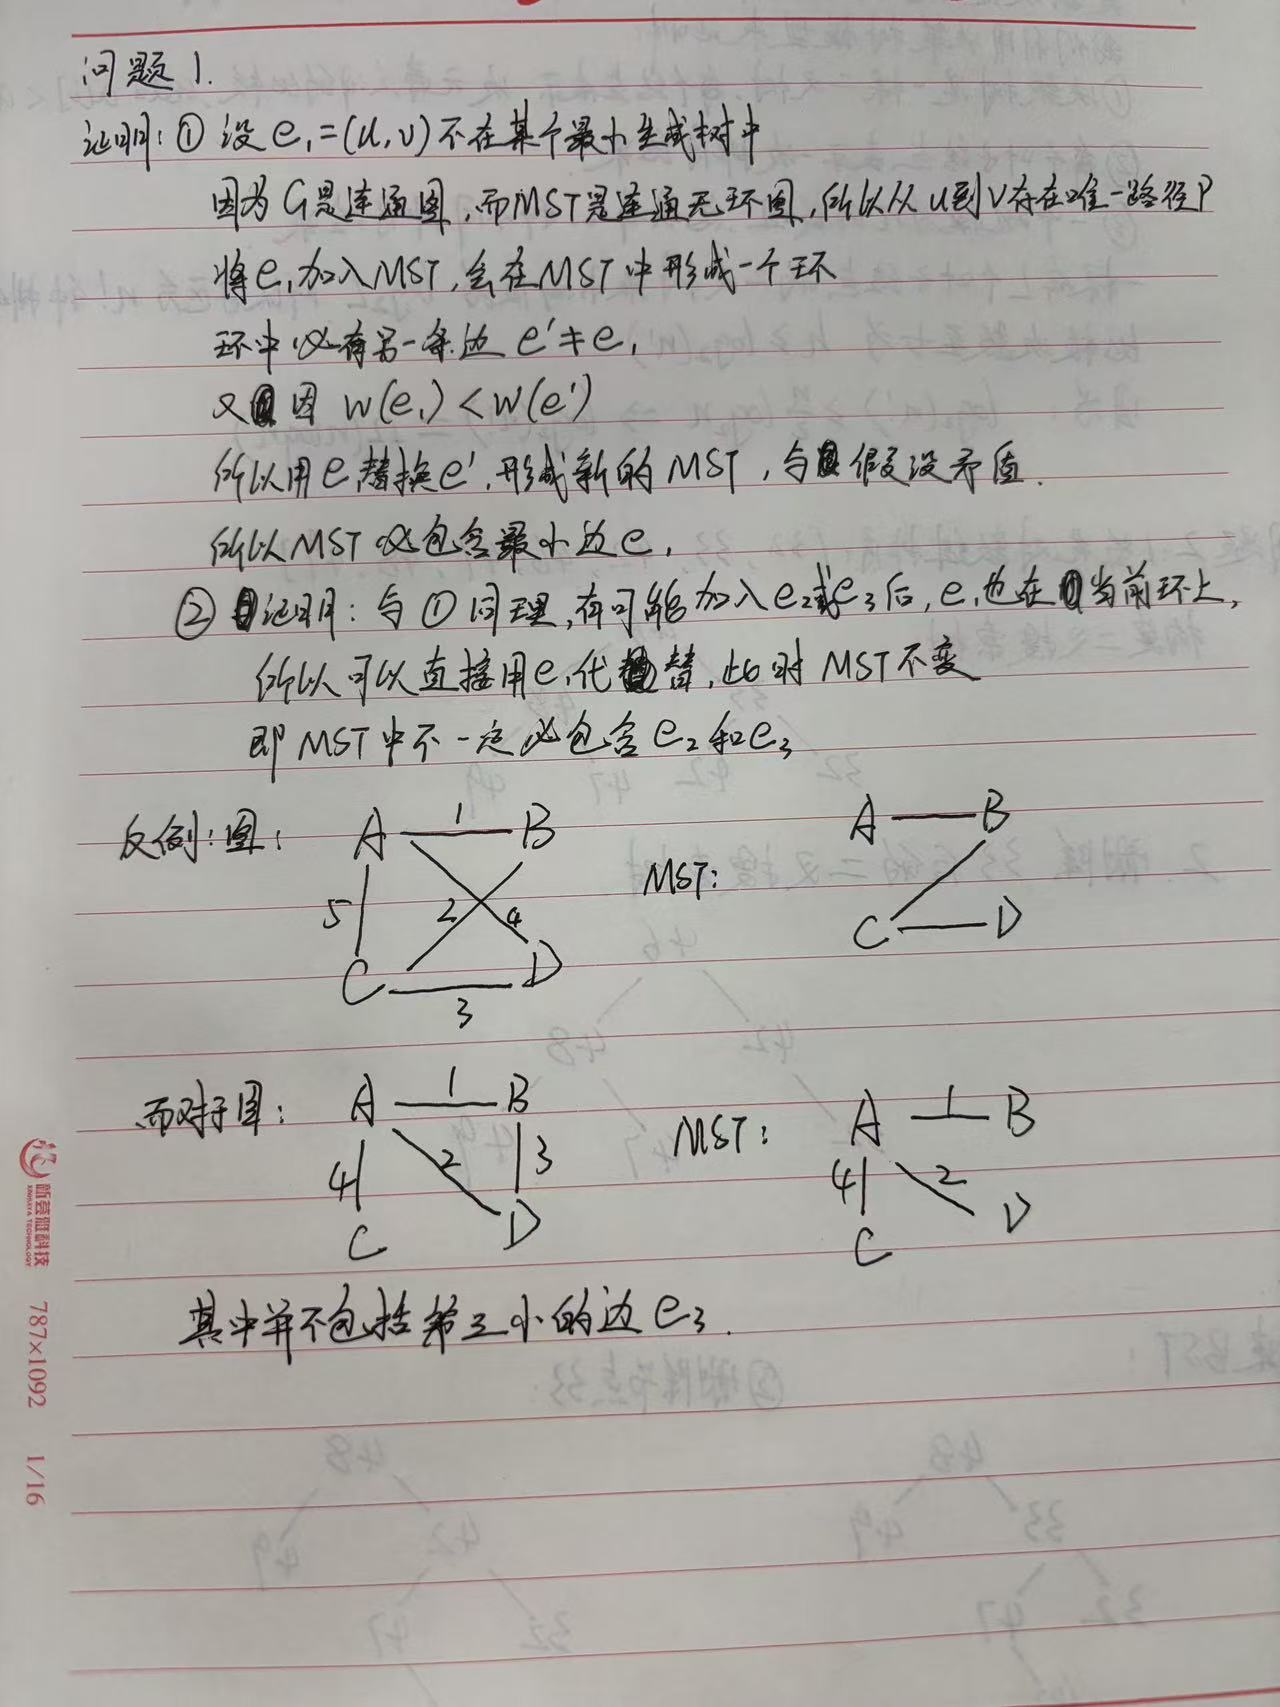 问题1.
证明:① 设e₁=(u,v)不在某个最小生成树中
因为G是连通图,而MST是连通无环图,所以从u到v存在唯一路径P
将e₁加入MST,会在MST中形成一个环
环中必有另一条边e'≠e₁
又因 w(e₁)<w(e')
所以用e₁替换e',形成新的MST,与假设矛盾.
所以MST必包含最小边e₁
② 证明:与①同理,有可能加入e₂或e₃后,e₁也在当前环上,
所以可以直接用e₁代替,此时MST不变
即MST中不一定必包含e₂和e₃
反例:图:
A 1 B
5 2 4
C 3 D
MST:
A B
C D
而对于图:
A 1 B
4 2 3
C D
MST:
A 1 B
4 2
C D
其中并不包括第三小的边e₃.
新荟雅科技
787×1092 1/16